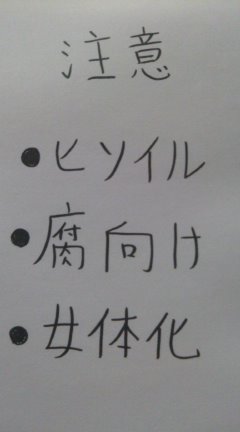 注意
●ヒソイル
●腐向け
●女体化